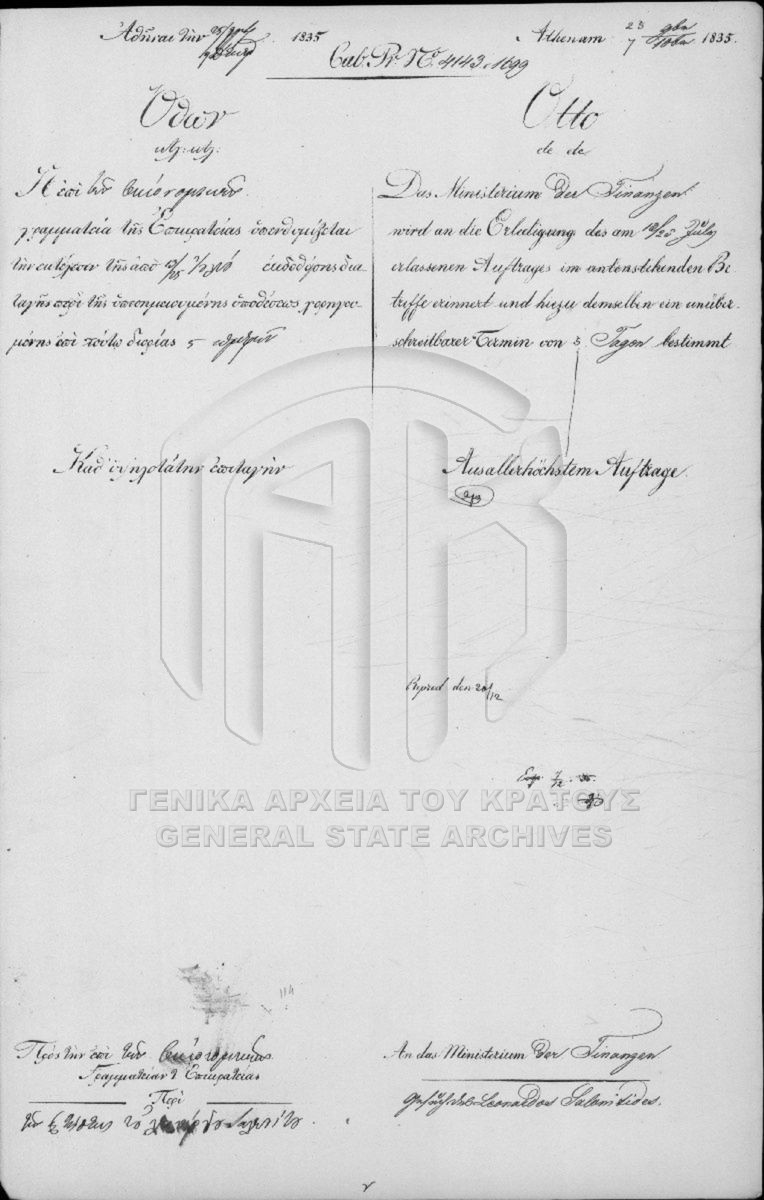 Ἀθῆναι τὴν 1835
Athen am 25/7 9ber/10ber 1835.
Cab. Pr. No. 4143.1699
Ὄθων
κτλ: κτλ:
Ἡ ἐπὶ τῶν Οἰκονομικῶν
γραμματεία τῆς Ἐπικρατείας ὑπενθυμίζεται
τὴν ἐκτέλεσιν τῆς ἀπὸ 13/25 Ἰουλίου ἐκδοθείσης δια-
ταγῆς περὶ τῆς ὑποσημειουμένης ὑποθέσεως χορηγου-
μένης ἐπὶ τούτῳ διορίας 5 ἡμερῶν
Καθ' ὑψηλοτάτην ἐπιταγὴν
Otto
de de
Das Ministerium der Finanzen
wird an die Erledigung des am 13/25 July
erlassenen Auftrages im untenstehenden Be
treffe erinnert und hiezu demselben ein unüber-
schreitbarer Termin von 5 Tagen bestimmt
Aus allerhöchstem Auftrage.
den 20/12
7/12 35
ΓΕΝΙΚΑ ΑΡΧΕΙΑ ΤΟΥ ΚΡΑΤΟΥΣ
GENERAL STATE ARCHIVES
114
Πρὸς τὴν ἐπὶ τῶν Οἰκονομικῶν
Γραμματείαν τ Ἐπικρατείας
Περὶ
An das Ministerium der Finanzen
Gesuch des Leonardos Salonitides.